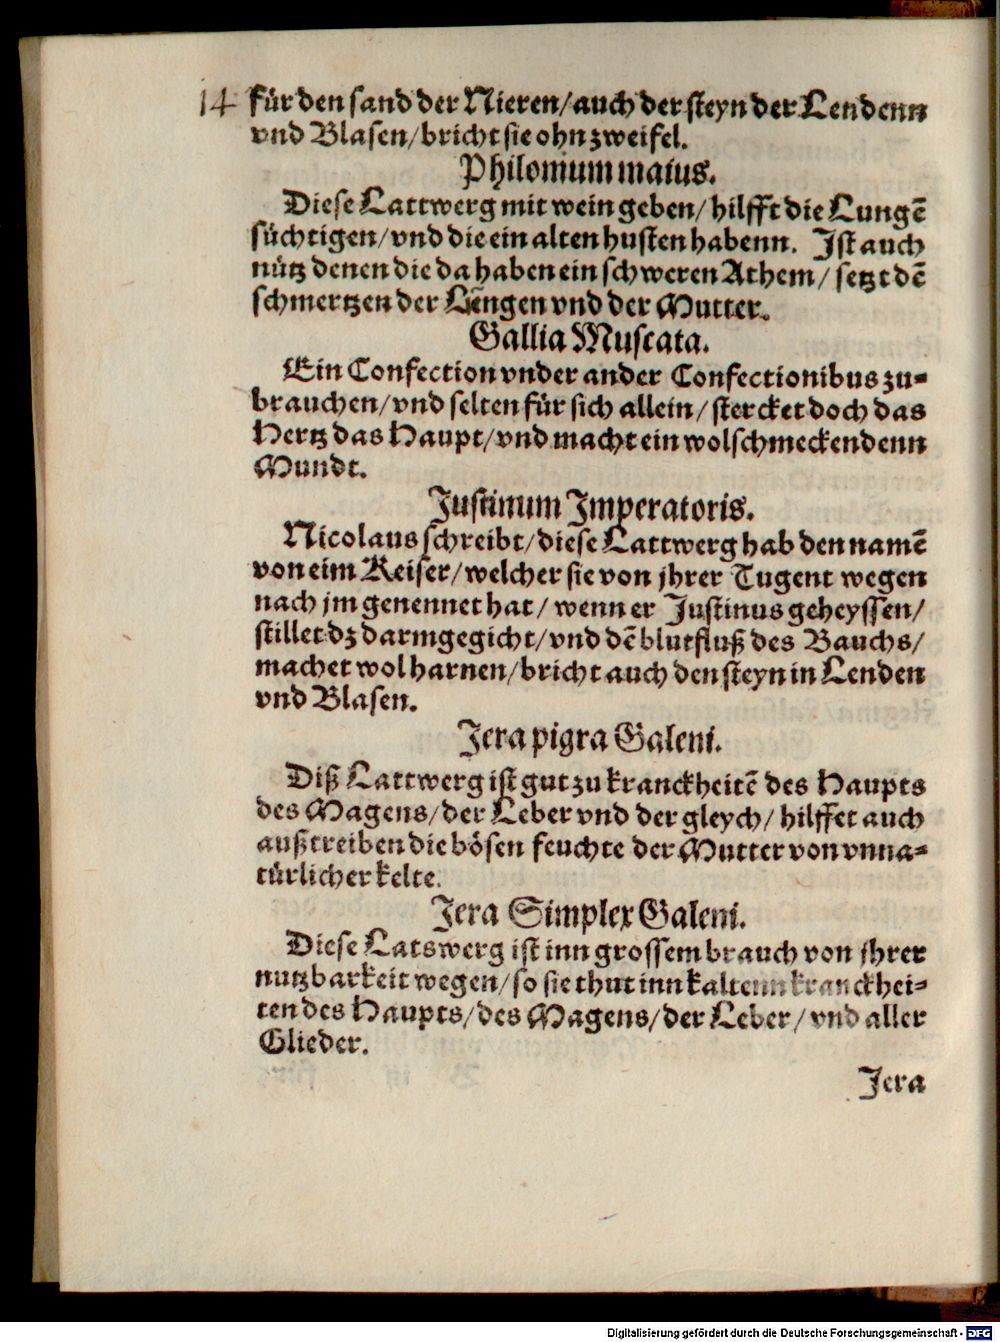 14 für den sand der Nieren/auch der steyn der Lendenn
vnd Blasen/bricht sie ohn zweifel.
Philonium maius.
Diese Lattwerg mit wein geben/hilfft die Lungẽ
süchtigen/vnd die ein alten husten habenn. Jst auch
nütz denen die da haben ein schweren Athem/setzt dẽ
schmertzen der Lẽngen vnd der Mutter.
Gallia Muscata.
Ein Confection vnder ander Confectionibus zu-
brauchen/vnd selten für sich allein/stercket doch das
Hertz das Haupt/vnd macht ein wolschmeckendenn
Mundt.
Justinum Jmperatoris.
Nicolaus schreibt/diese Lattwerg hab den namẽ
von eim Keiser/welcher sie von jhrer Tugent wegen
nach jm genennet hat/wenn er Justinus geheyssen/
stillet dz darmgegicht/vnd dẽ blutfluß des Bauchs/
machet wol harnen/bricht auch den steyn in Lenden
vnd Blasen.
Jera pigra Galeni.
Diß Lattwerg ist gut zu kranckheitẽ des Haupts
des Magens/der Leber vnd der gleych/hilffet auch
außtreiben die bösen feuchte der Mutter von vnna-
türlicher kelte.
Jera Simplex Galeni.
Diese Latswerg ist inn grossem brauch von jhrer
nutzbarkeit wegen/so sie thut inn kaltenn kranckhei-
ten des Haupts/des Magens/der Leber/vnd aller
Glieder.
Jera
Digitalisierung gefördert durch die Deutsche Forschungsgemeinschaft - DFG